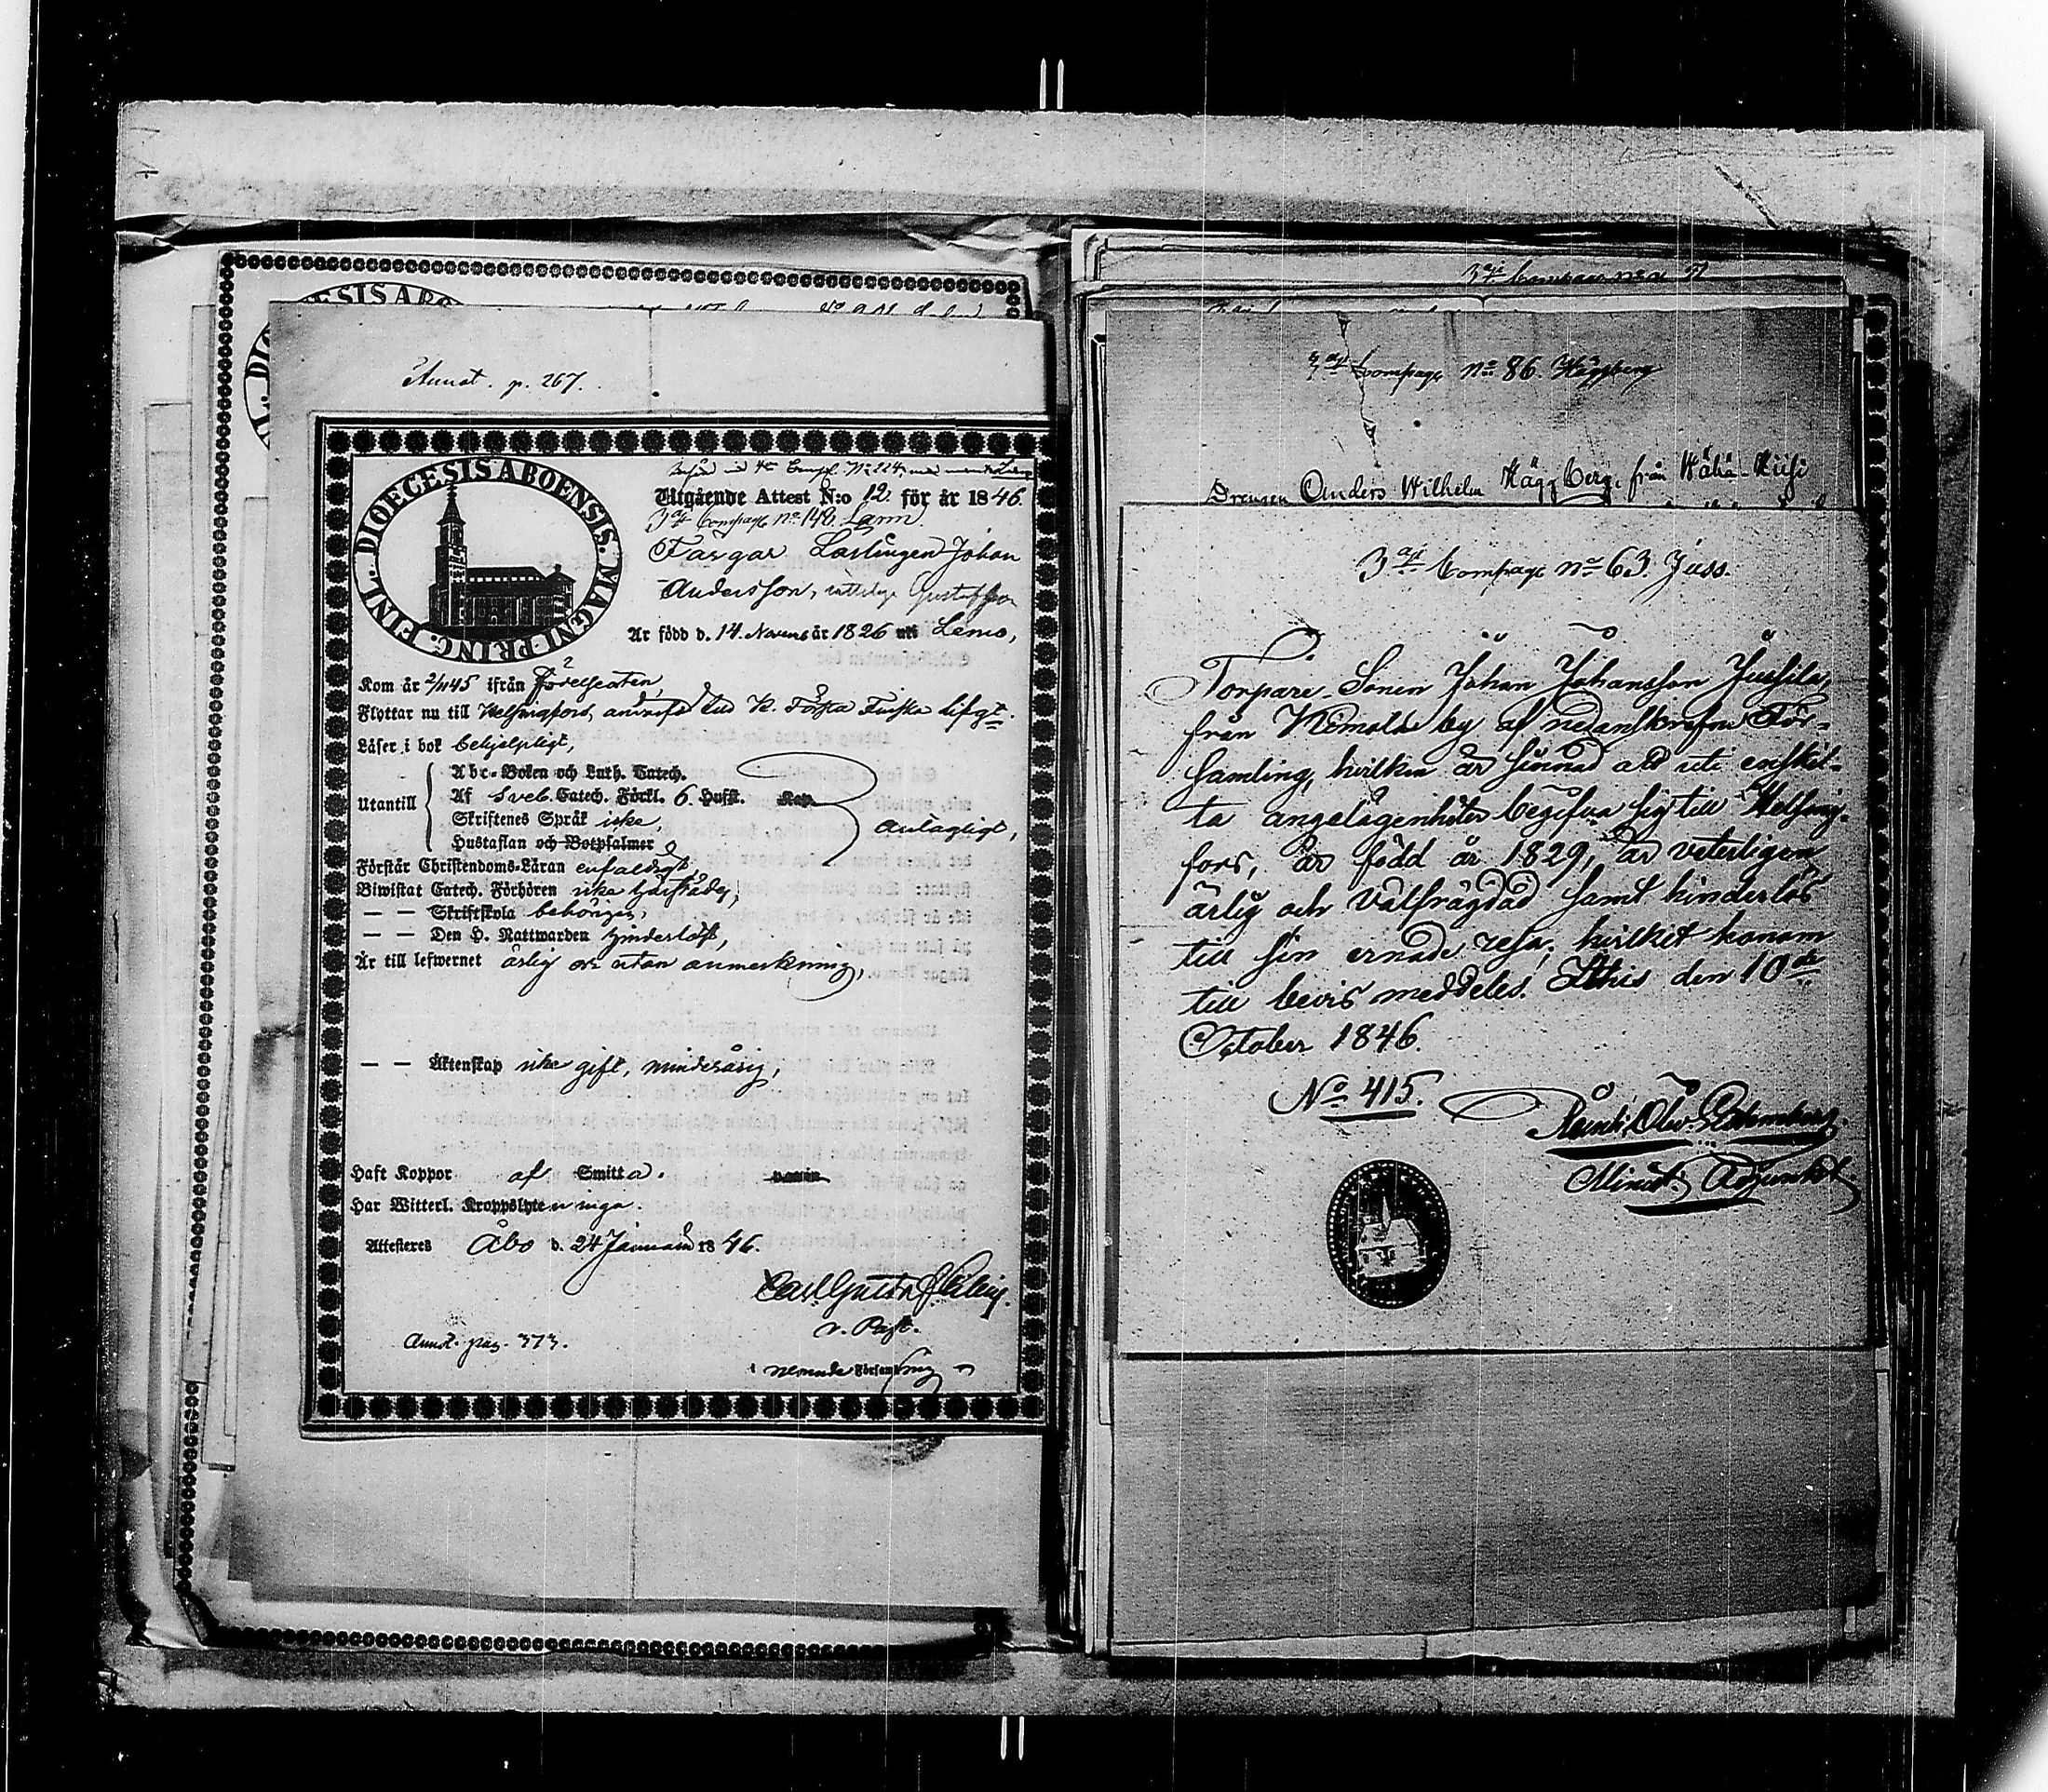 Annot. p. 267.
FINL. DIOECESIS ABOENSIS. MAGNI PRINC.
4de Comp. No 224
Utgående Attest N:o 12. för år 1846.
3dje Compagt no 142. Lamm
Färgar Lärlingen Johan
Andersson, rättelige Gustafsson
Är född d. 14 Novemb år 1826 uti Lemo,
Kom år 2/11 45 ifrån
Flyttar nu till Helsingfors, antagen vid K. Första Finska
Läser i bok behjelpligt,
Utantill
Abc-Boken och Luth. Catech.
Af Sveb. Catech. Förkl. 6. Hufst. Kap.
Skriftenes Språk icke,
Hustaflan och Botpsalmer
antagligt,
Förstår Christendoms-Läran enfaldigt,
Biwistat Catech. Förhören icke
— — Skriftskola behörigen,
— — Den H. Nattwarden hinderlöst,
Är till lefwernet ärlig och utan anmerkning,
— — Äktenskap icke gift, minderårig,
Haft Koppor af Smitta.
Har Witterl. Kroppslyten inga.
Attesteras Åbo d. 24 Januarii 1846.
Carl Gustaf
v. Past.
Annot. pag. 373.
nemnde Församling
3dje Compagne n
3dje Compagt No 86. Häggberg
Drengen Anders Wilhelm Häggberg, från Wähä-Hiisi
3dje Compagt no 63. Juss.
Torpare Sonen Johan Johansson Jussila,
från Nemola by af nedanskrefne För-
samling, hvilken är sinnad att uti enskil-
ta angelägenheter begifva sig till Helsing-
fors, är född år 1829, är veterligen
ärlig och välfrägdad samt hinderlös
till sin ernade resa; hvilket honom
till bevis meddeles. Lthis den 10de
October 1846.
No 415.
Minist. Adjunkt.